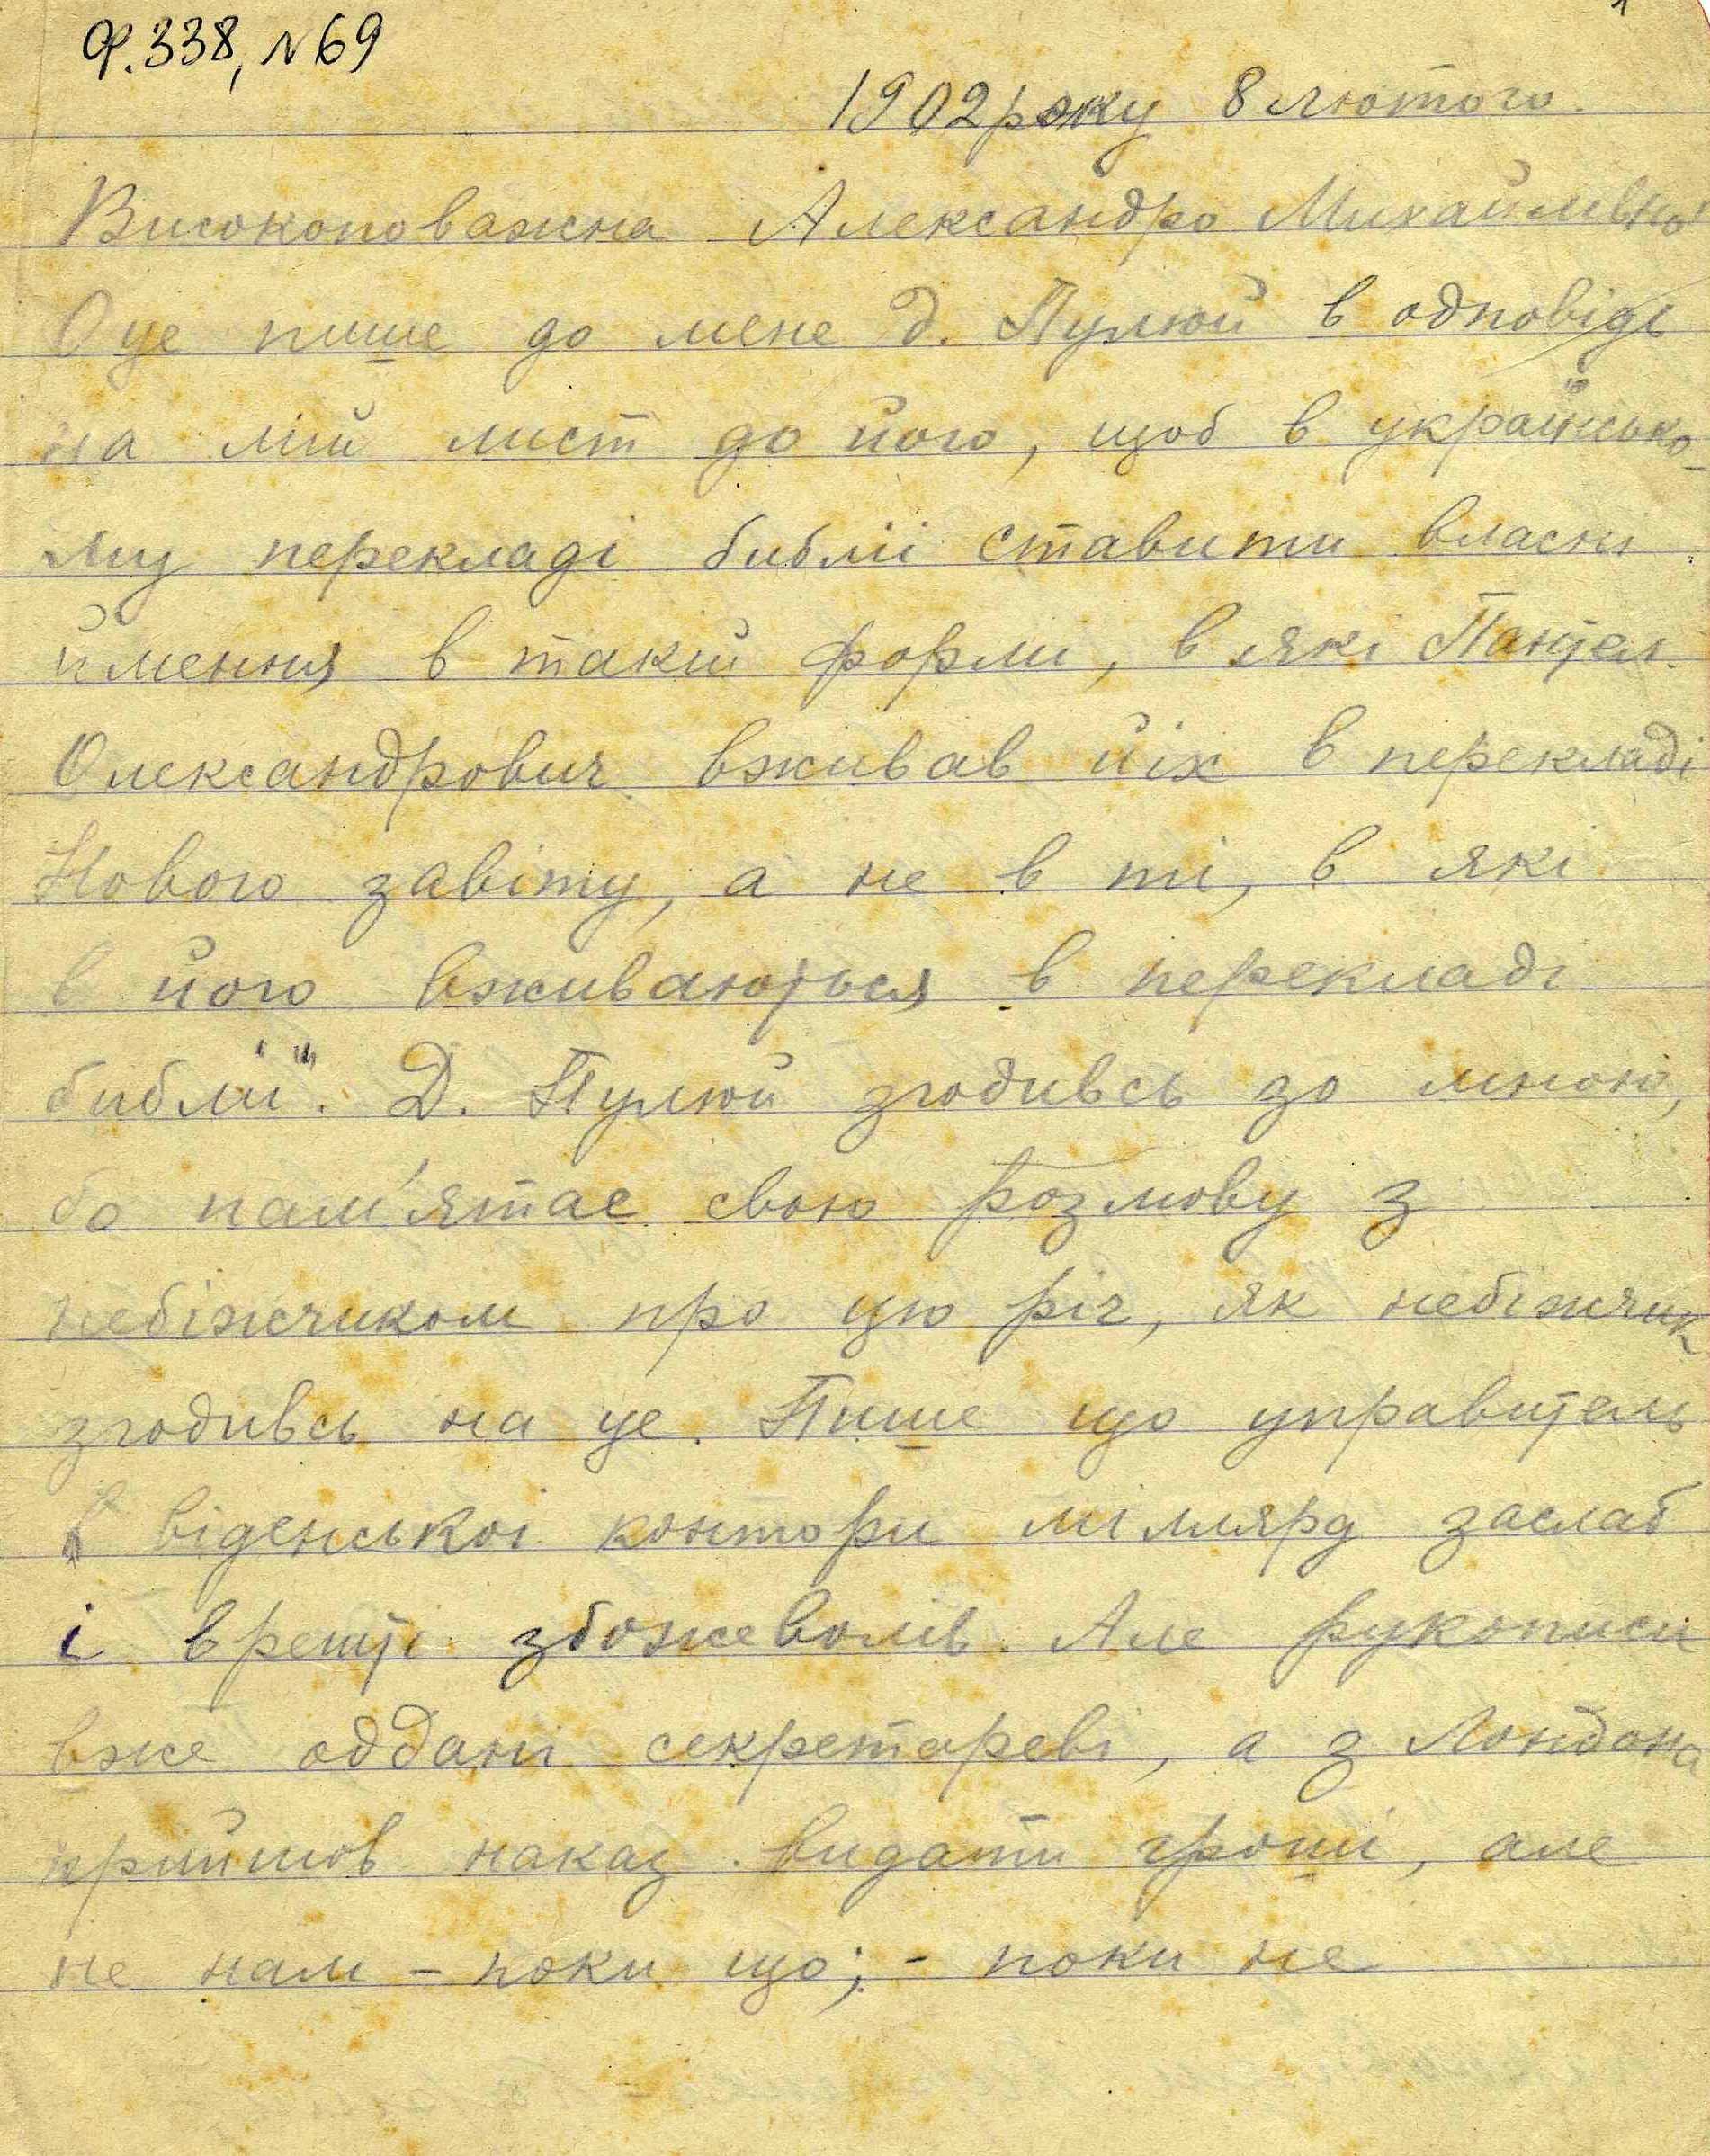 Ф. 338, № 69
1
1902 року 8 лютого.
Високоповажна Александро Михайлівно!
Оце пише до мене д. Пулюй в одповідь
на мій лист до його, щоб в українсько-
му перекладі библіі ставити власні
ймення в такій форми, в які Пантел.
Олександрович вживав йіх в перекладі
Нового завіту, а не в ті, в які
в його вживаються в перекладі
библіі". Д. Пулюй згодивсь зо мною,
бо пам'ятає свою розмову з
небіжчиком про цю річ, як небіжчик
згодивсь на це. Пише що управитель
віденськоі контори міллярд заслаб
і врешті збожеволів. Але рукописи
вже оддані секретареві, а з Лондона
прийшов наказ видати гроші, але
не нам – поки що; – поки не